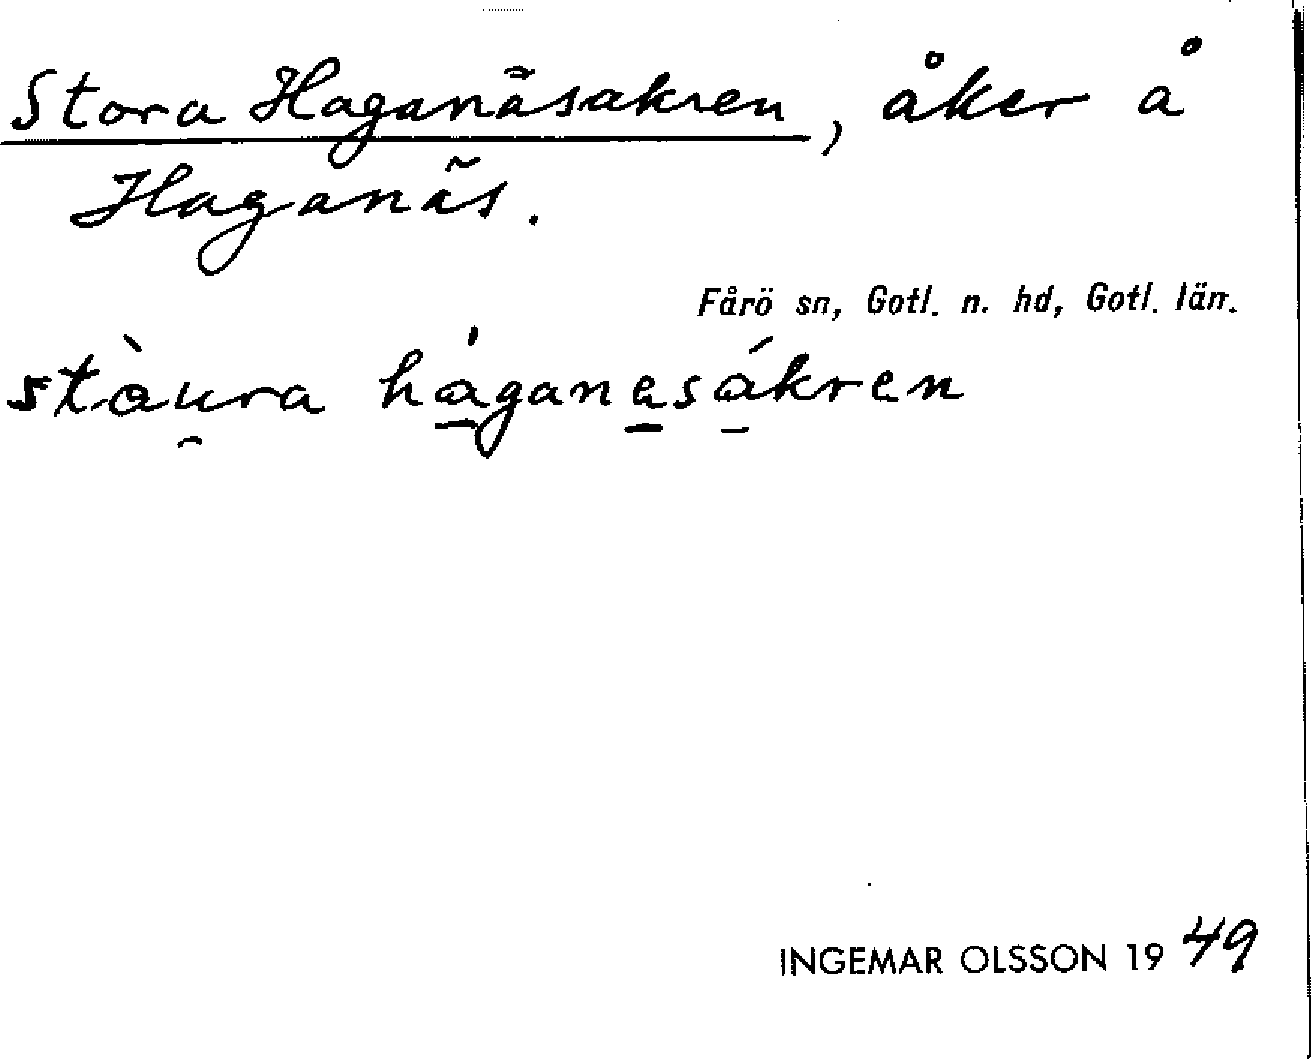 Stora Haganäsakren, åker å
Haganäs.
Fårö sn, Gotl. n. hd, Gotl. län.
stàu̯ra há̱gane̱sá̱kren
INGEMAR OLSSON 1949